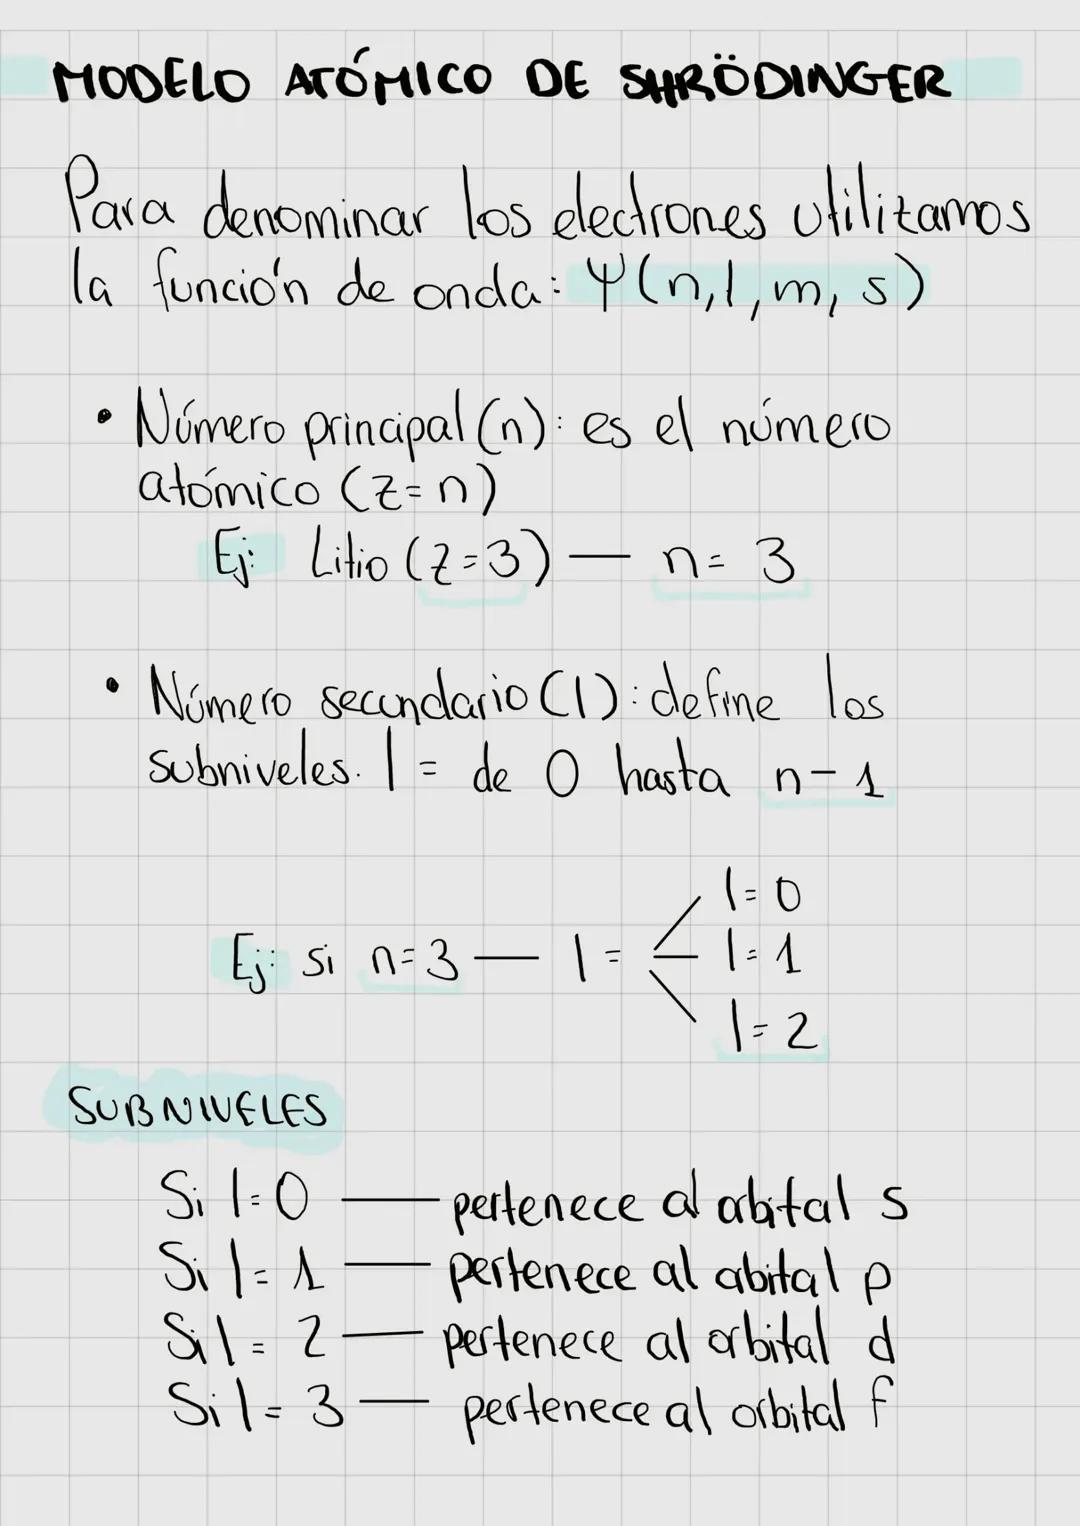 MODELO ATÓMICO DE SHRÖDINGER
Para denominar los electrones utilizamos
la función de onda: Ψ(n,l,m,s)
• Número principal (n): es el número
atómico (z=n)
Ej: Litio (z=3) — n= 3
• Número secundario (l): define los
subniveles. l = de 0 hasta n-1
l=0
Ej: si n=3 — l = l=1
l=2
SUBNIVELES
Si l=0 — pertenece al orbital s
Si l=1 — pertenece al orbital p
Si l=2 — pertenece al orbital d
Si l=3 — pertenece al orbital f